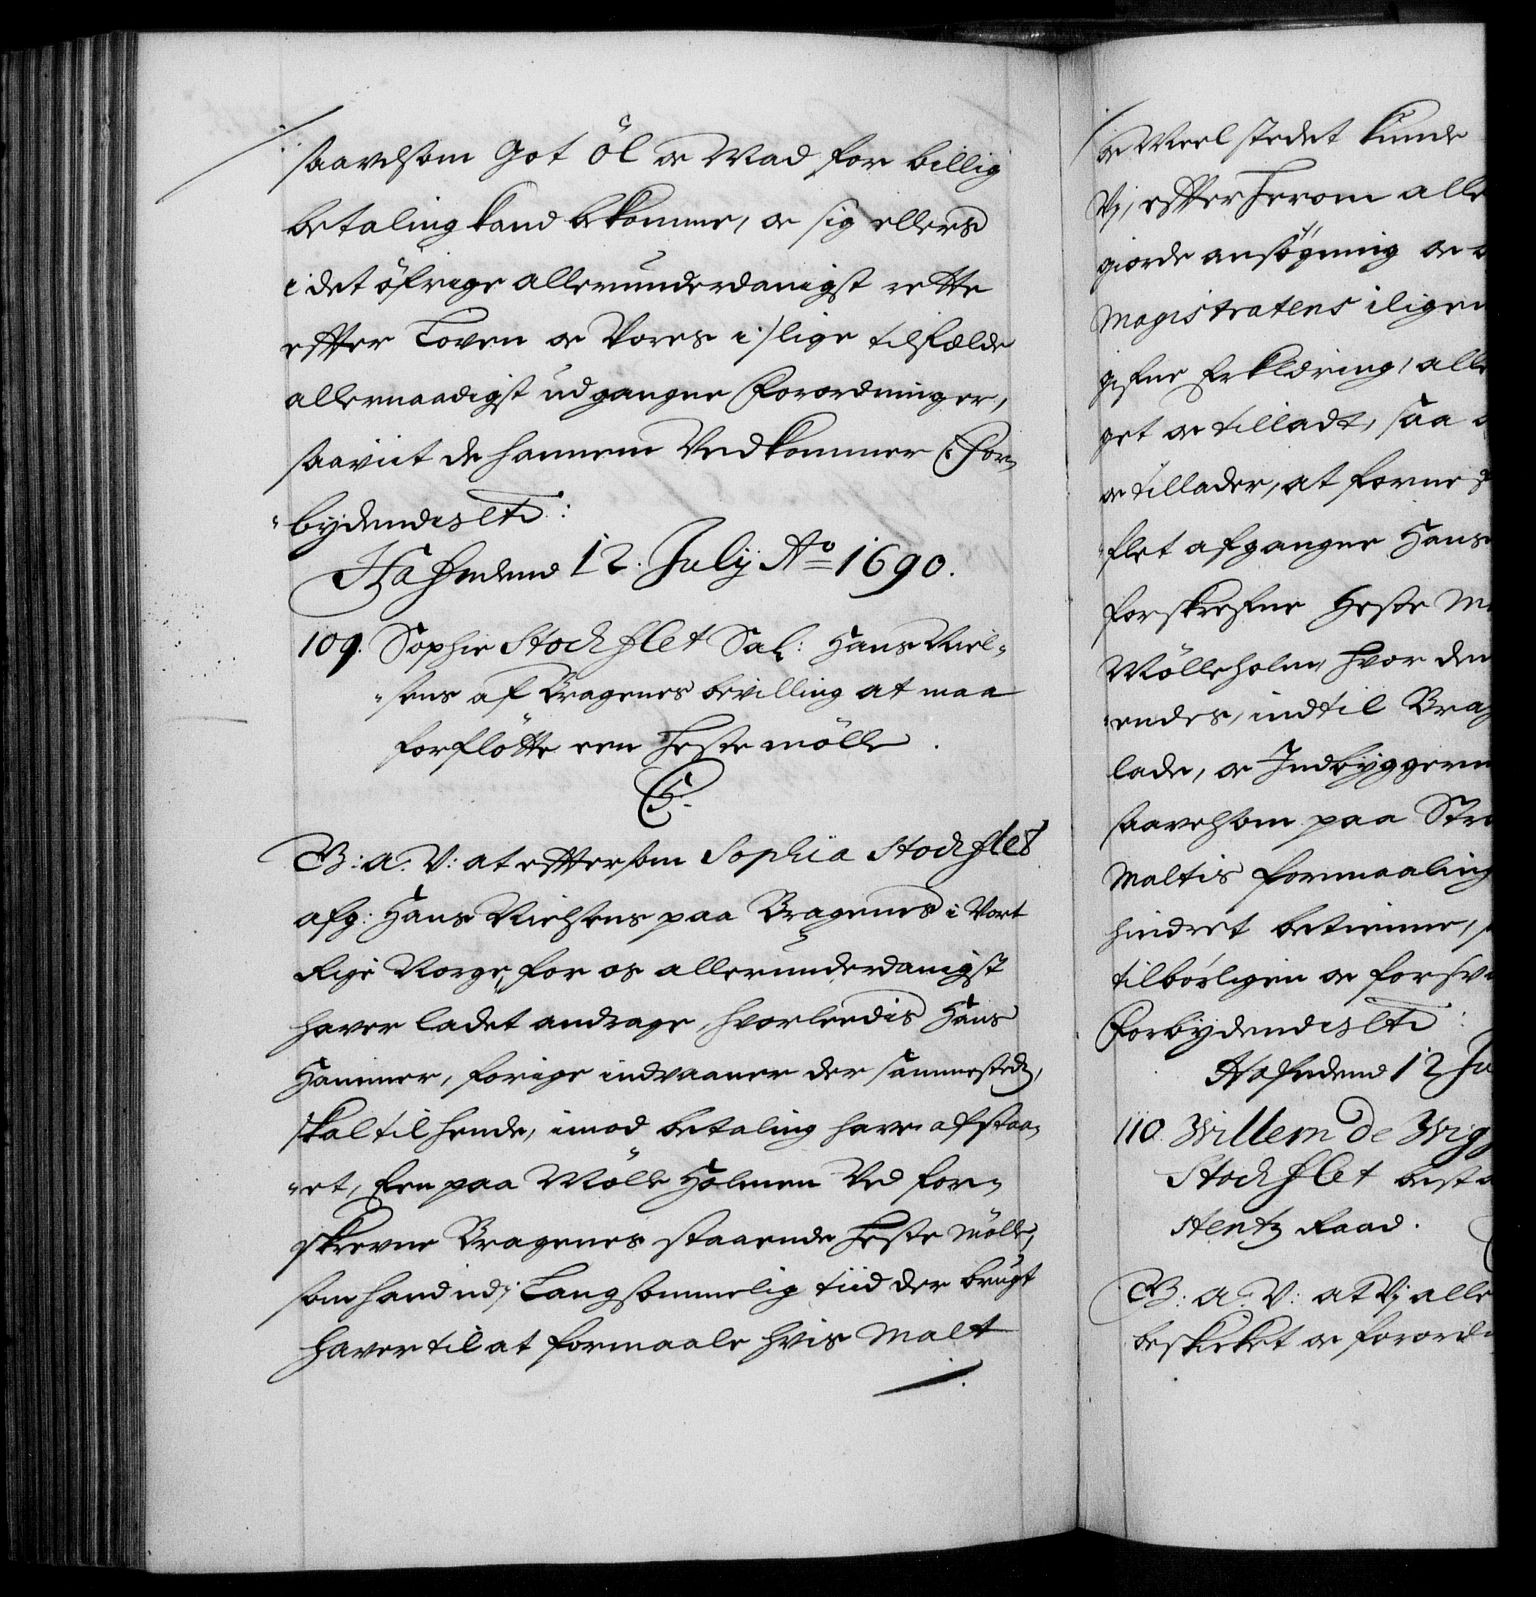 saavelsom Got Öl oc Mad for billig
betaling kand bekomme, oc sig ellers
i det öfrige allerunderdanigst rette
effter Loven oc Vores i slige tilfælde
allernaadigst udgangne Forordninger,
saaviit de hannem Vedkommer Chor¬
bydendis etc:
Hafniæ d 12. Julij Ao 1690.
109. Sophie Stockflet Sal: Hans Niel¬
sens af Bragenes bevilling at maa
forflötte een Heste mölle.
C5.
G: a: V: at effterson Sophia Stockflet
afg: Hans Nielsens paa Bragenes i Vort
Rige Norge, for os allerunderdanigst
haver ladet andrage, hvorleedis Hans
Hammer, forige indvaaner der sammesteds,
skal til hende, imod betaling have afstaa¬
et, Een paa Mölle Holmen Ved for¬
skrevne Bragenes staaende Heste mölle,
som hand udj Langsommelig tiid der brugt
haver til at formaale hvis Malt
oc Meel stedet kunde
Vj, effter herom alle
giorde ansögning oc
Magistratens
gifne Erklæring, alle
get oc tilladt, saa
oc tillader, at forne
flet afgangne Hans
forskrefne Heste
Mölleholm, hvor den
endes, indtil Brag
lade, oc Indbyggerne
saavelsom paa Strø
Maltis formaaling
hindret betienne,
tilbörligen oc forsv
Forbydendis etc:
Hafniæ d 12 Ju
110. Willem de Wigg
Stockflet besta
Raad.
G: a: V: at Vj alle
beskicket oc forord